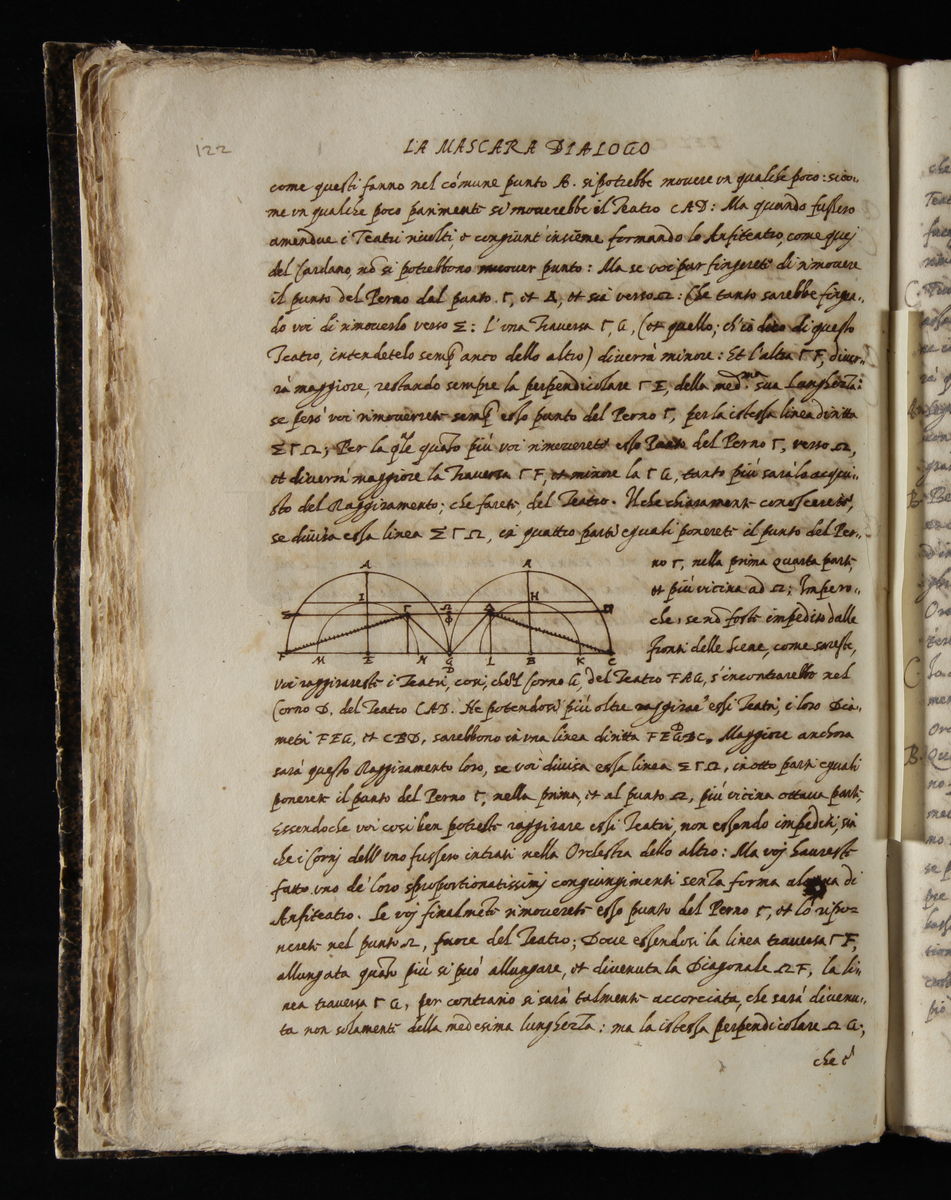 122
LA MASCARA DIALOGO
come questi fanno nel cómune punto B. si potrebbe movere un qualche poco: sico‑
me un qualche poco parimente si moverebbe il Teatro CAD: Ma quando fussero
amendue i Teatri rivolti, e congiunt' insieme formando lo Anfiteatro, come quej
del Cardano, nō si potrebbono muover punto: Ma se voi pur fingerete di rimovere
il punto del Perno dal punto Γ, et Δ, et sia verso Ω: Che tanto sarebbe fingen‑
do voi di rimoverlo verso Σ: L'una Traversa Γ, G, (et quello; ch'io dico di questo
Teatro, intendetelo semp anco dello altro) diverrà minore: Et l'altra Γ F, diver‑
rà maggiore, restando sempre la perpendicolare Γ Ξ, della med.ma sua Lunghezza:
se però voi rimoverrete semp esso punto del Perno Γ, per la istessa linea diritta
Σ Γ Ω; Per la qle quāto più voi rimoverete esso Punto del Perno Γ, verso Ω,
et diverrà maggiore la Traversa Γ F, et minore la Γ G, tanto più sarà lo acqui‑
sto del Raggiramento; che farete, del Teatro. Il che chiaramente conoscerete,
se divisa essa linea Σ Γ Ω, in quattro parti eguali ponerete il punto del Per‑
no Γ, nella prima Quarta parte,
et più vicina ad Ω; Impero‑
che, se nō foste impedito dalle
fronti delle scene, come sareste,
A A
I H
Σ Γ Ω Φ Δ Π
F M E N G D L B K C
voi raggirareste i Teatri, cosi, che'l Corno G, del Teatro FAG, s'incontrarebbe nel
Corno D. del Teatro CAD. Ne potendosi più oltre raggirar' essi Teatri, i loro Dia‑
metri FEG, et CBD, sarebbono in una linea diritta FEGDBC. Maggiore anchora
sarà questo Raggiramento loro, se voi divisa essa linea Σ Γ Ω, in otto parti eguali
ponerete il punto del Perno Γ, nella prima, et al punto Ω, più vicina ottava parte,
Essendoche voi cosi ben potreste raggirare essi Teatri, non essendo impediti; sin
che i Cornj dell' uno fussero intrati nella Orchestra dello altro: Ma voj haureste
fatto uno de' loro sproportionatissimj congiungimenti senza forma alcuna di
Anfiteatro. Se voj finalmēte rimoverete esso punto del Perno Γ, et lo ripo‑
nerete nel punto Ω, fuore del Teatro; Dove essendosi la linea traversa Γ F,
allungata quāto più si può allungare, et divenuta la Diagonale Ω F, la li‑
nea traversa Γ G, per contrario si sarà talmente accorciata, che sarà divenu‑
ta non solamente della medesima lunghezza: ma la istessa perpendicolare Ω G;
che è